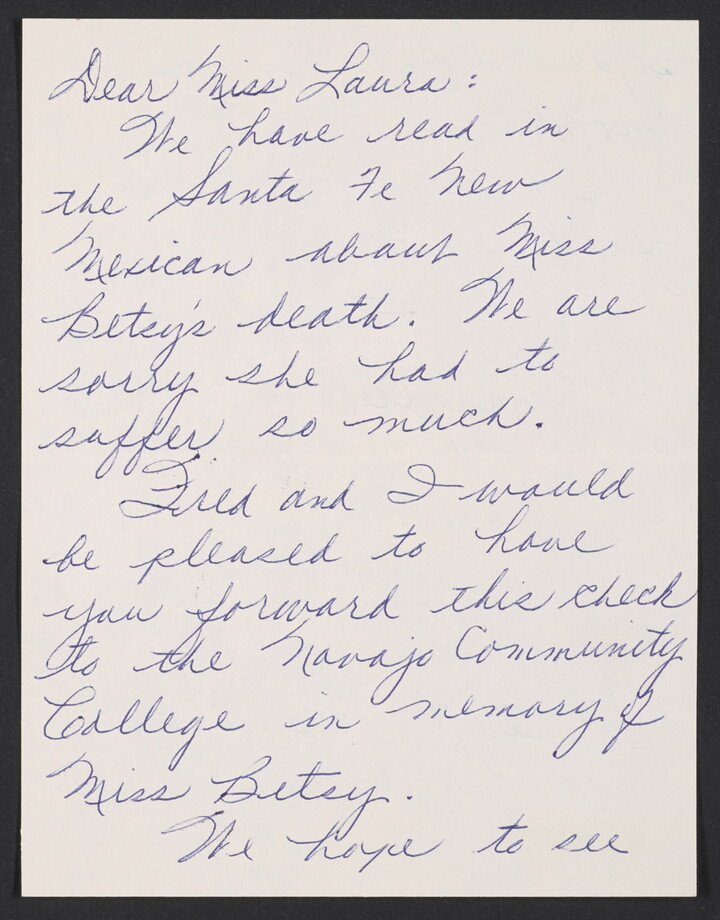 Dear Miss Laura:
We have read in
the Santa Fe New
Mexican about Miss
Betsy's death. We are
sorry she had to
suffer so much.
Fred and I would
be pleased to have
you forward this check
to the Navajo Community
College in memory of
Miss Betsy.
We hope to see